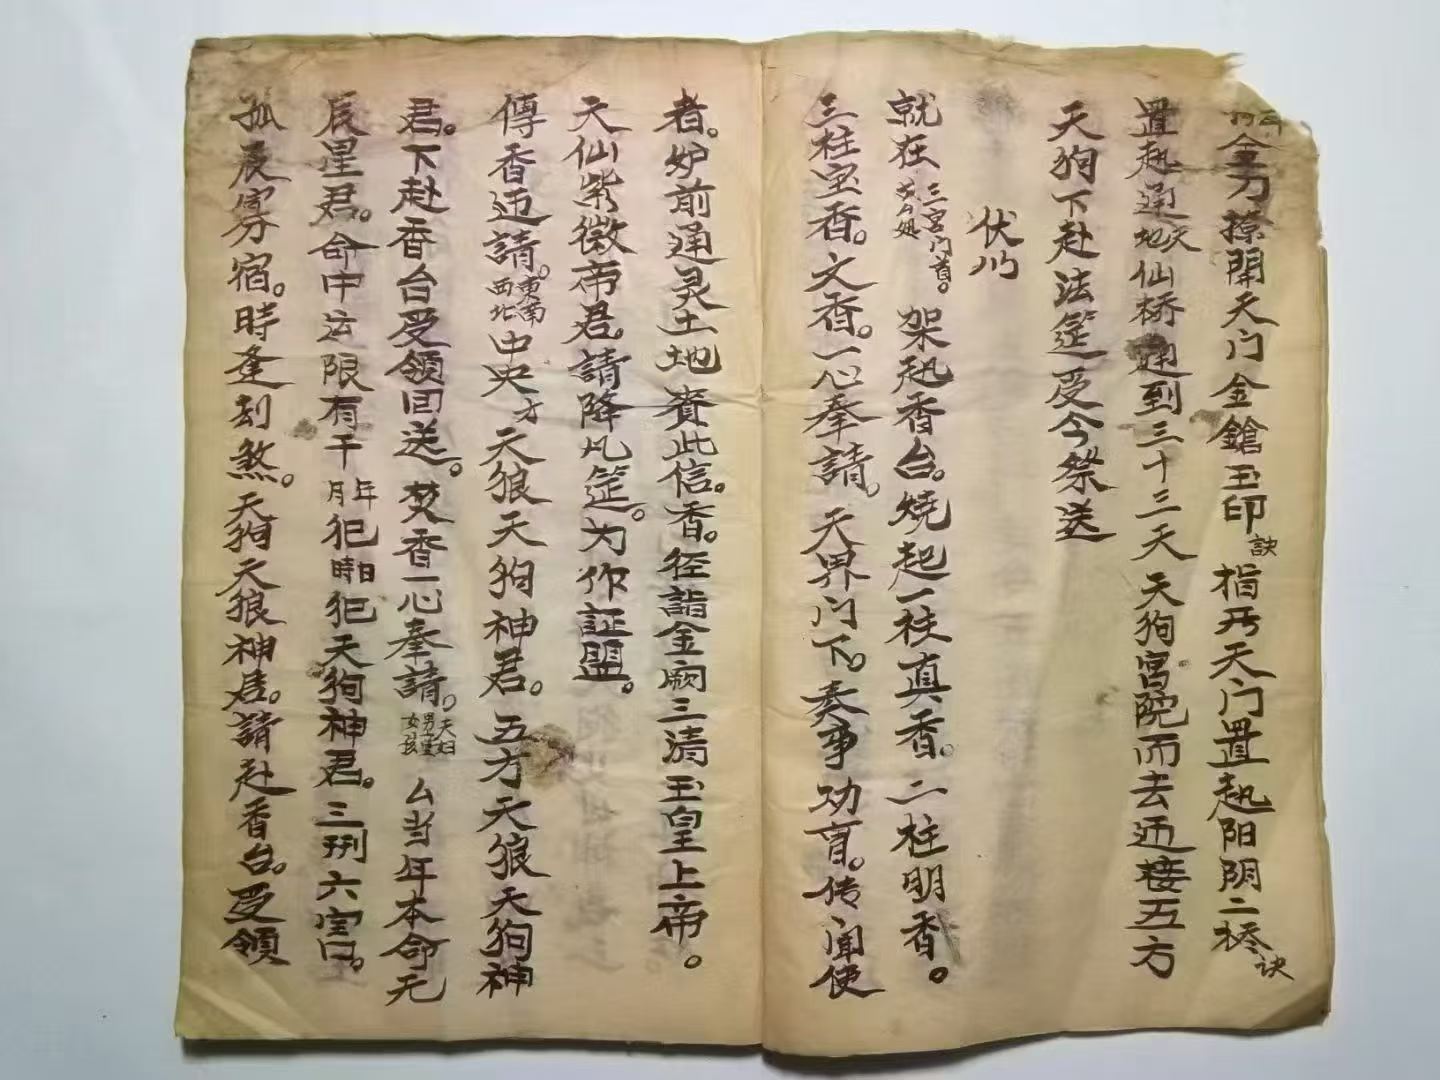 金刀撩開天门金鎗玉印訣指开天门置起阳阴二桥诀
置起通天地仙桥通到三十三天天狗宫院而去迎接五方
天狗下赴法筵受今祭送
伏以
就在三宫门首。架起香台。燒起一柱真香。二柱明香。
三柱宝香。文香。一心奉請。天界门下。奏事功曹。传闻使
者。炉前通灵土地賫此信。香。径詣金阙三清玉皇上帝。
天仙紫微帝君。請降凡筵。为作証盟。
傳香迎請。東南西北中央方天狼天狗神君。五方天狼天狗神
君。下赴香台受領回送。焚香一心奉請。夫妇男童女孩厶当年本命元
辰星君。命中注限有干年月犯日時犯天狗神君。三刑六害。
孤辰寡宿。時逢刻煞。天狗天狼神君。請赴香台。受領